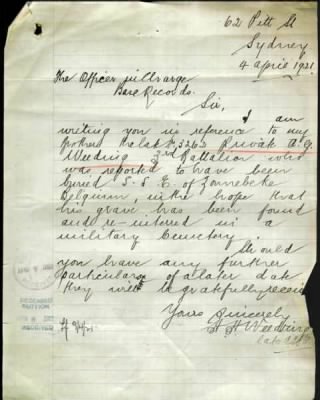 62 Pitt St
Sydney
4 April 1921.
The Officer in Charge
Base Records.
Sir,
I am
writing you in reference to my
brother the late 3263 Private A. G.
Weeding 3rd Battalion who
was reported to have been
buried S. S. E. of Zonnebeke
Belgium, in the hope that
his grave has been found
and re-interred in a
military Cemetery.
Should
you have any further
particulars of a later date
they will be gratefully receiv
Yours Sincerely
H Weeding
RECEIVED